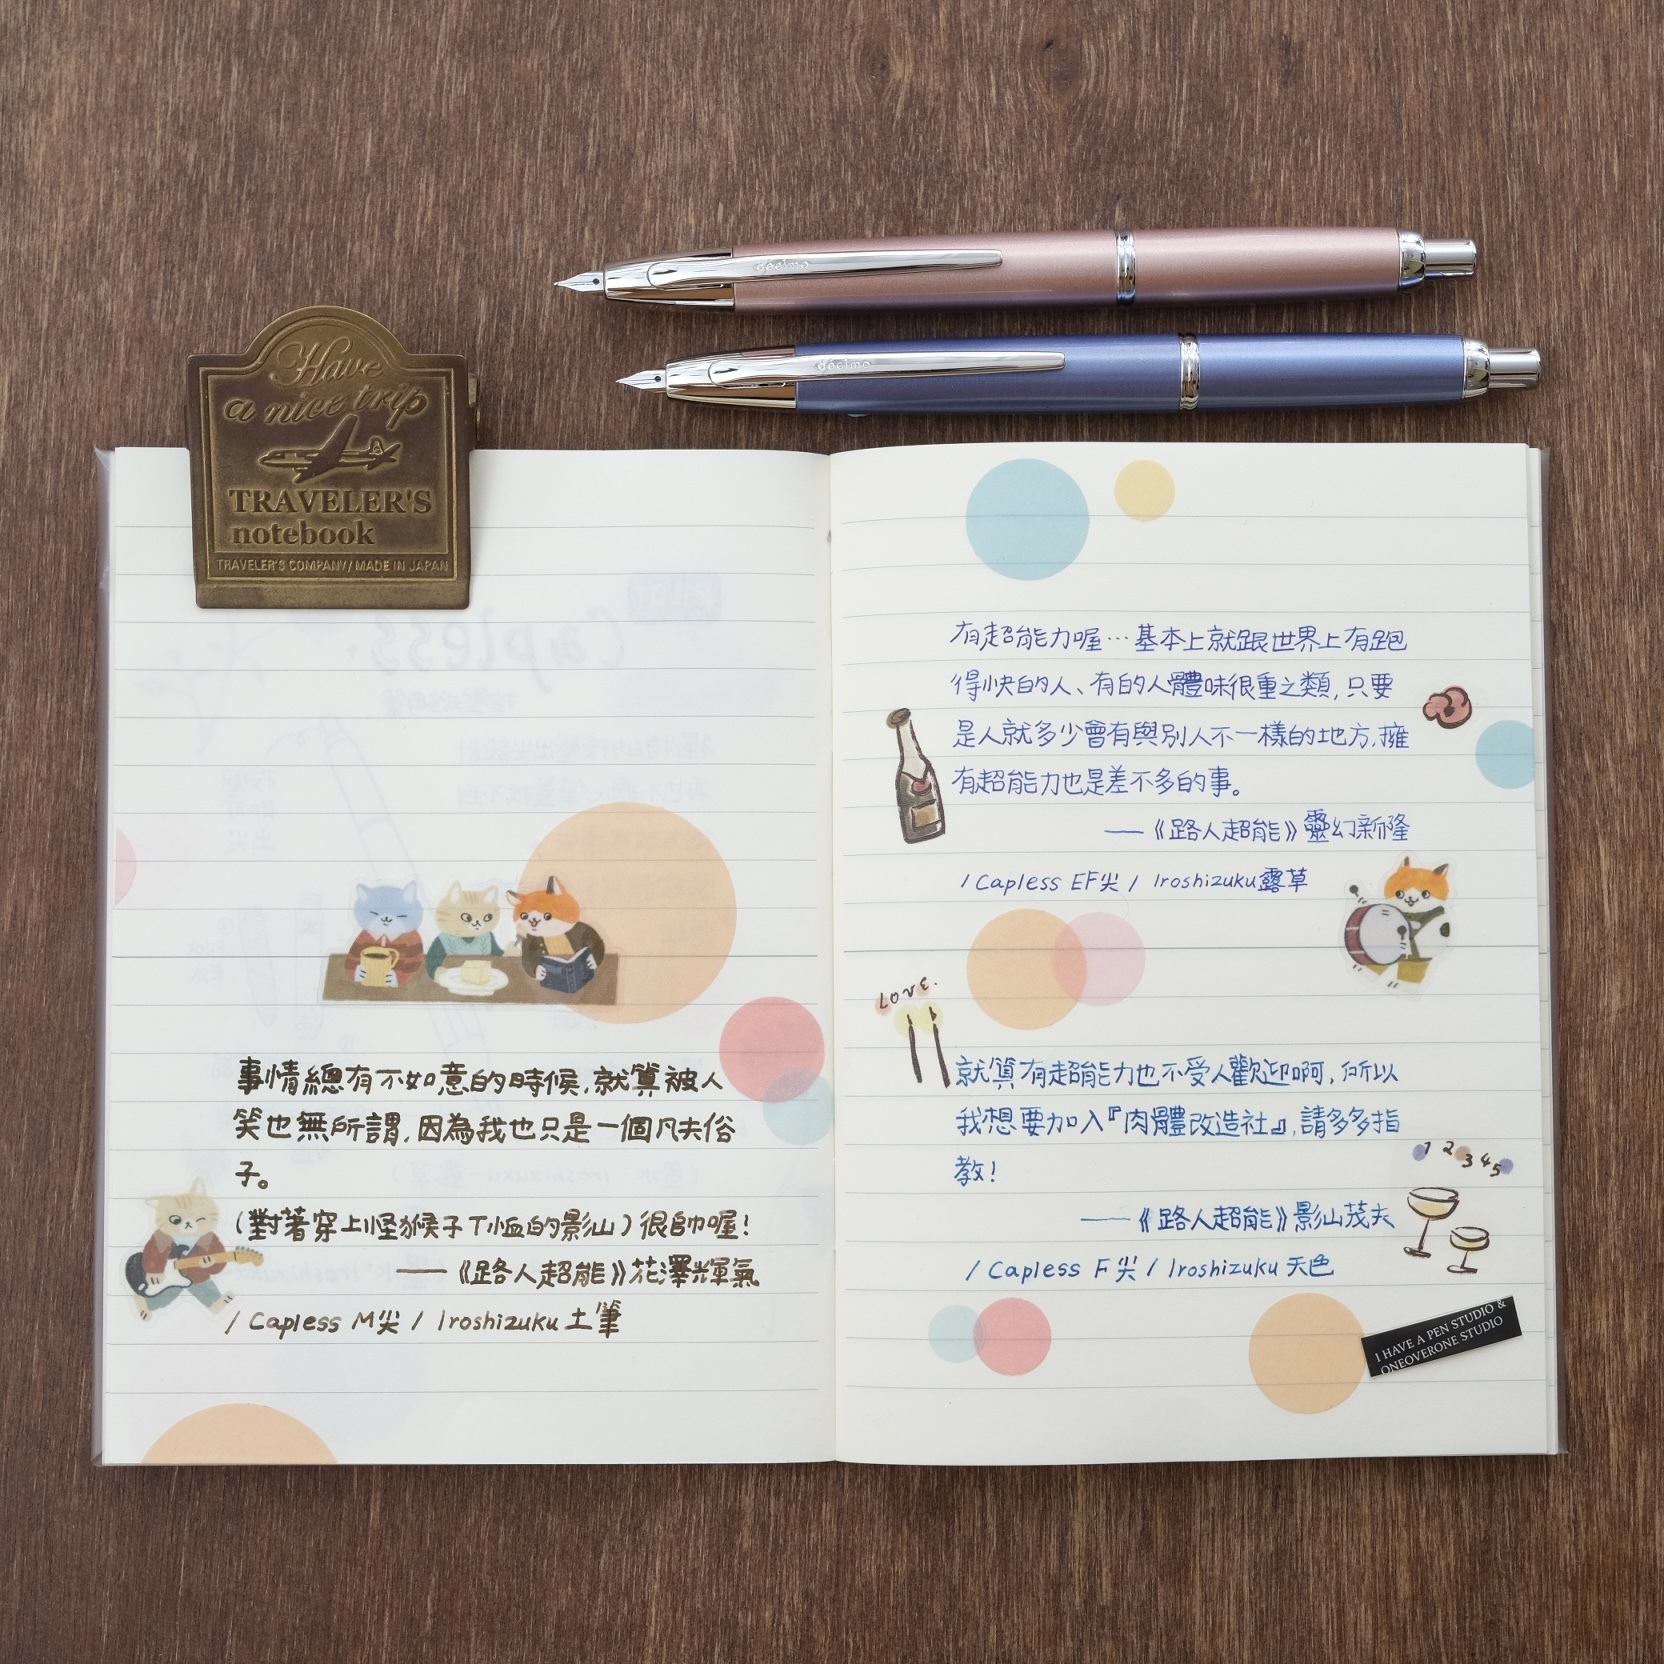 décimo
décimo
Have
a nice trip
TRAVELER'S
notebook
TRAVELER'S COMPANY/MADE IN JAPAN
事情總有不如意的時候,就算被人
笑也無所謂,因為我也只是一個凡夫俗
子。
(對著穿上怪猴子T恤的影山)很帥喔!
——《路人超能》花澤輝氣
/ Capless M尖 / Iroshizuku 土筆
有超能力喔…基本上就跟世界上有跑
得快的人、有的人體味很重之類,只要
是人就多少會有與別人不一樣的地方,擁
有超能力也是差不多的事。
——《路人超能》靈幻新隆
/ Capless EF尖 / Iroshizuku露草
LOVE.
就算有超能力也不受人歡迎啊,所以
我想要加入『肉體改造社』,請多多指
教!
——《路人超能》影山茂夫
/ Capless F尖 / Iroshizuku 天色
1 2 3 4 5
I HAVE A PEN STUDIO &
ONEOVERONE STUDIO